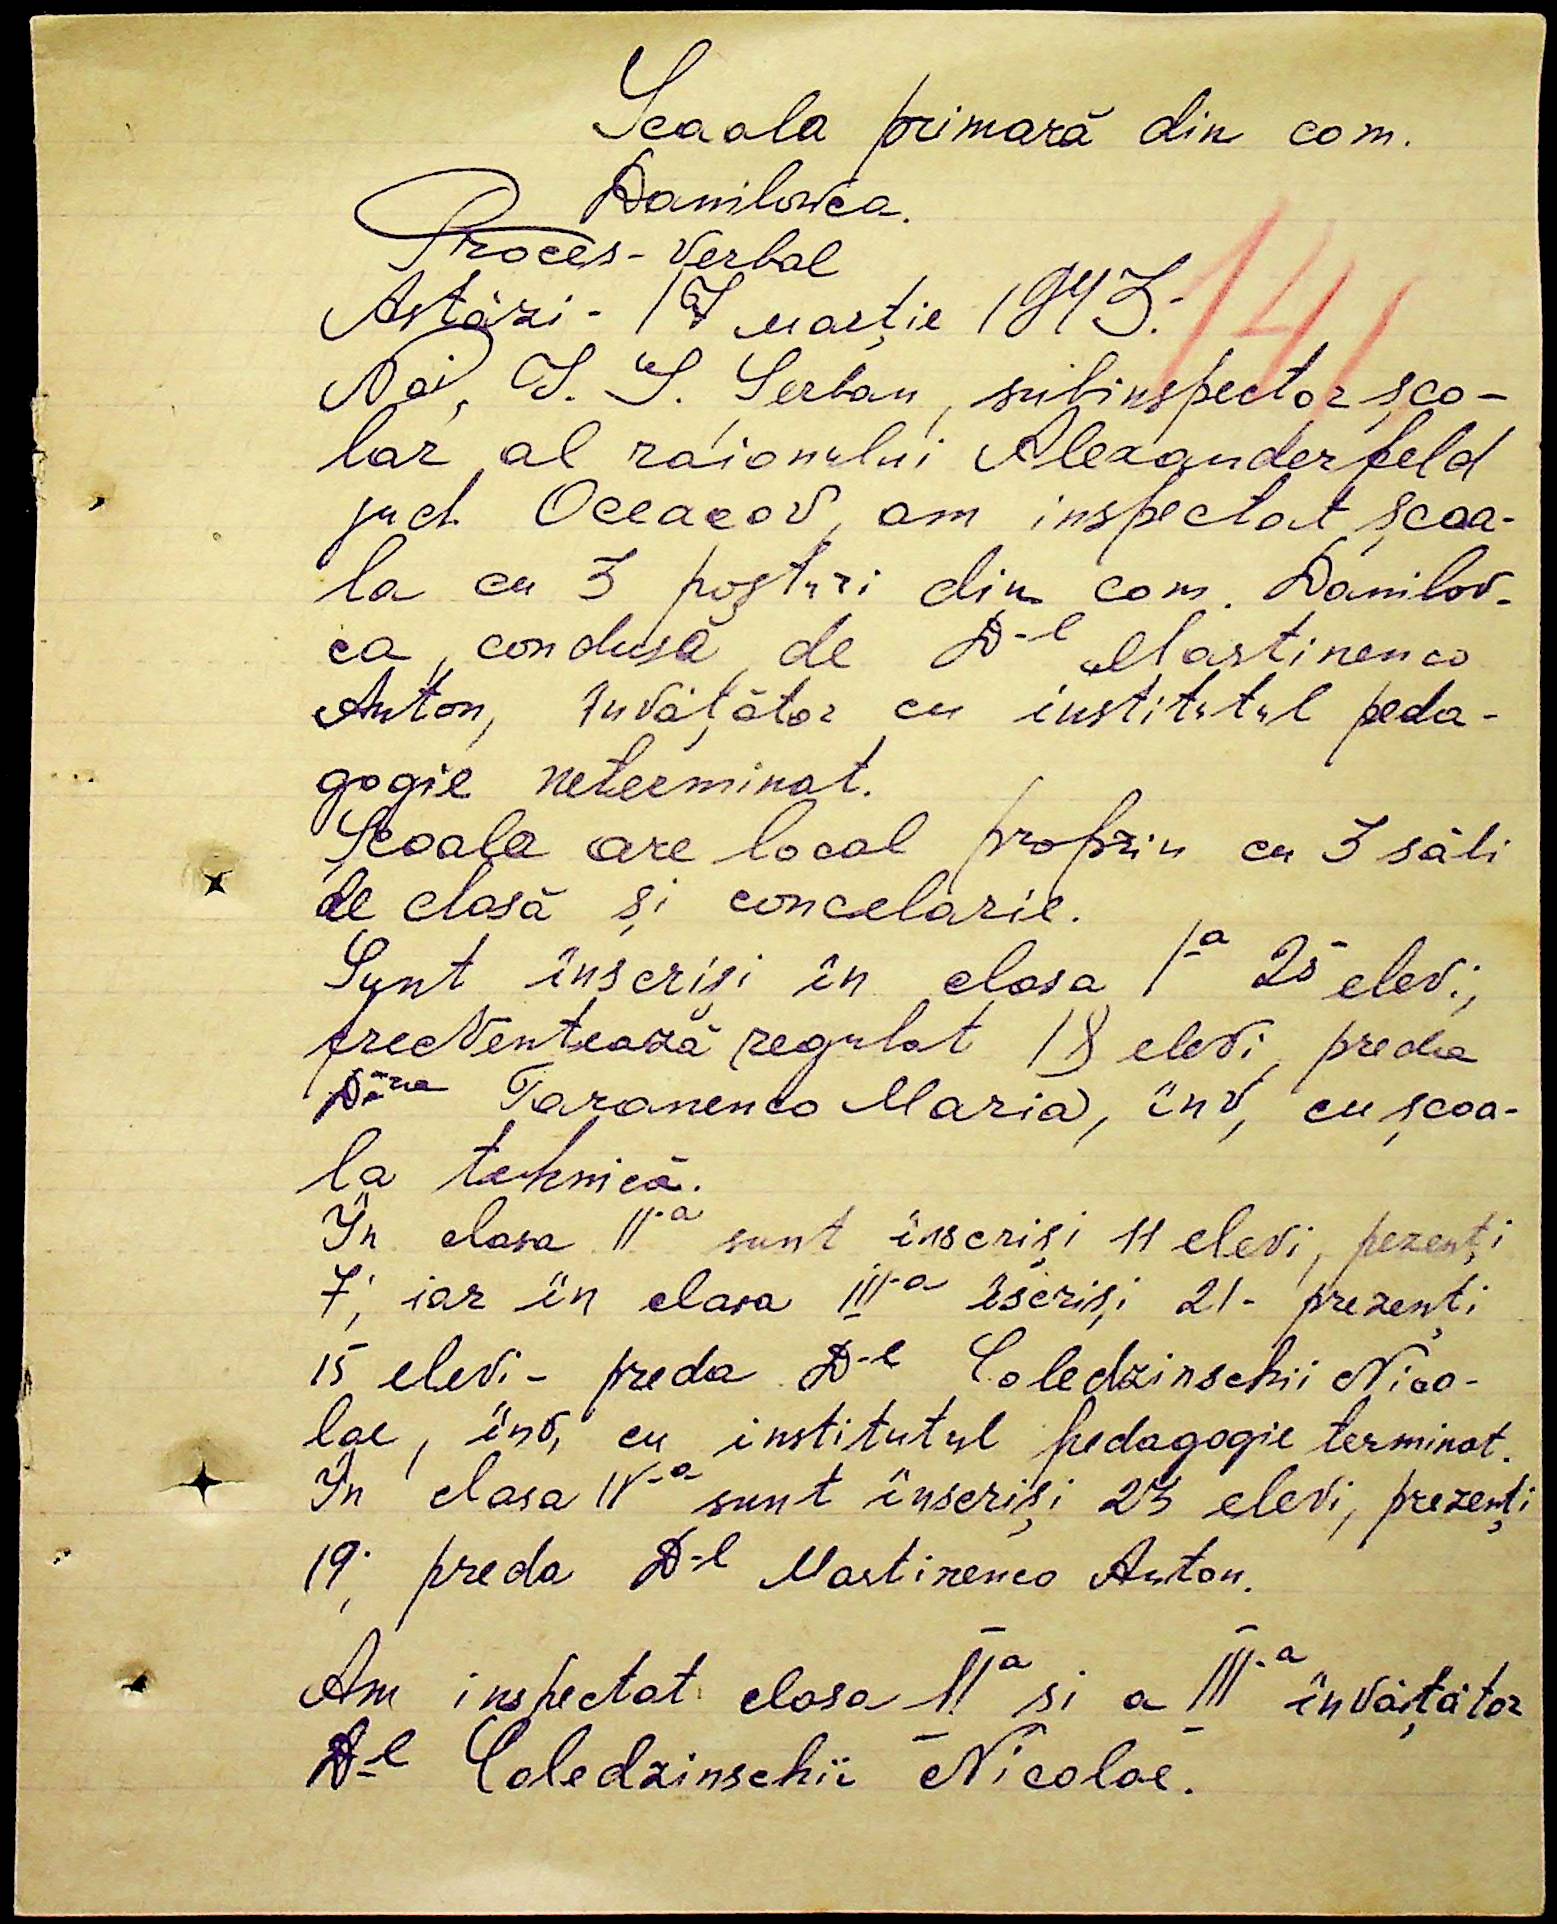 Scaola primară din com.
Danilovca.
Proces-verbal
Astăzi - 17 marție 1943.-
141
Noi, I. I. Serban, subinspector șco-
lar al raionului Alexanderfeld
jud. Oceacov, am inspectat școa-
la cu 3 posturi din com. Danilov-
ca, condusă de D-l Martinenco
Anton, învățător cu institutul peda-
gogie neterminat.
Școala are local propriu cu 3 săli
de clasă și concelarie.
Sunt înscriși în clasa I-a 25 elevi,
frecventează regulat 18 elevi, preda
D-na Taranenco Maria, înv, cu școa-
la tehnică.
În clasa II-a sunt înscriși 11 elevi, pezenți
7; iar în clasa III-a îscriși 21 - prezenți
15 elevi - preda D-l Coledzinschii Nico-
lae, înv, cu institutul pedagogie terminat.
În clasa IV-a sunt înscriși 23 elevi, prezenți
19; preda D-l Martinenco Anton.
Am inspectat clasa II a și a III-a învățător
D-l Coledzinschii Nicolae.